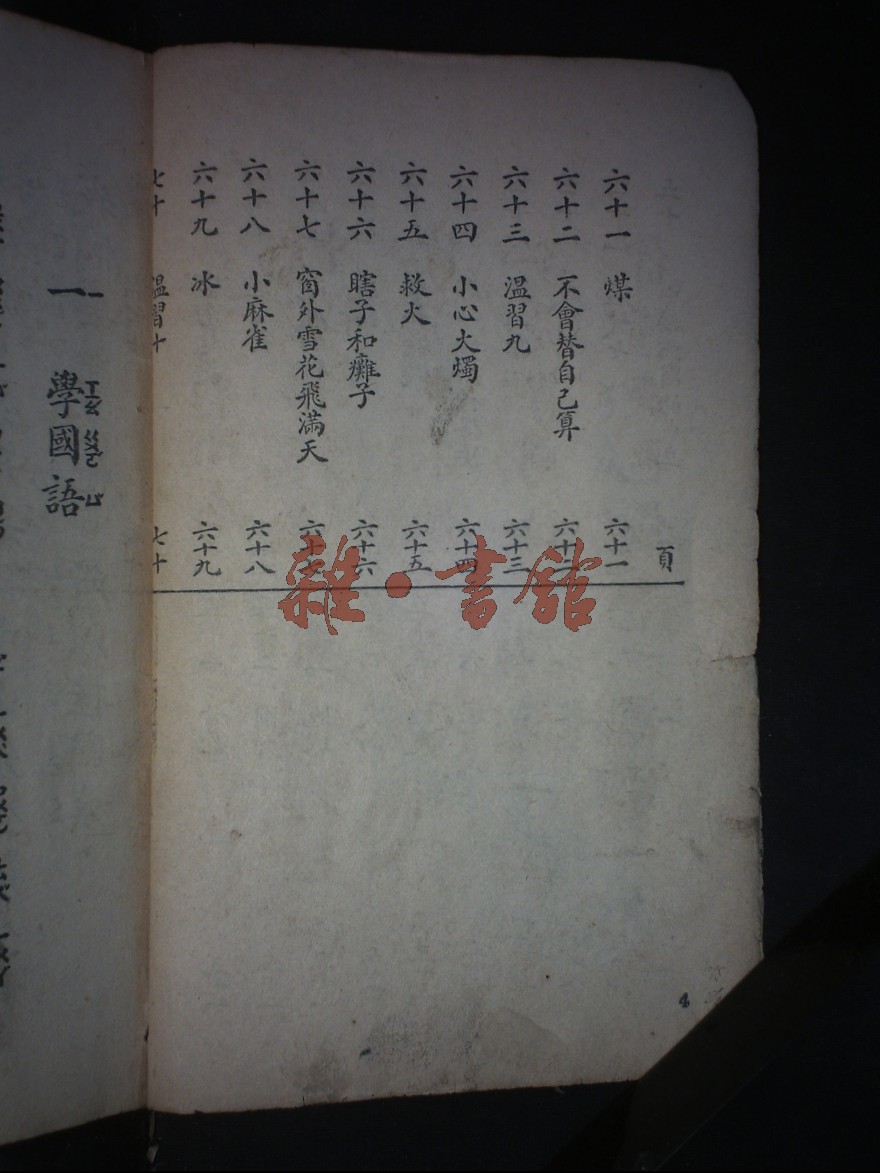 頁
六十一 煤 六十一
六十二 不會替自己算 六十二
六十三 溫習九 六十三
六十四 小心火燭 六十四
六十五 救火 六十五
六十六 瞎子和癱子 六十六
六十七 窗外雪花飛滿天 六十七
六十八 小麻雀 六十八
六十九 冰 六十九
七十 溫習十 七十
4
雜·書館
一 學國語